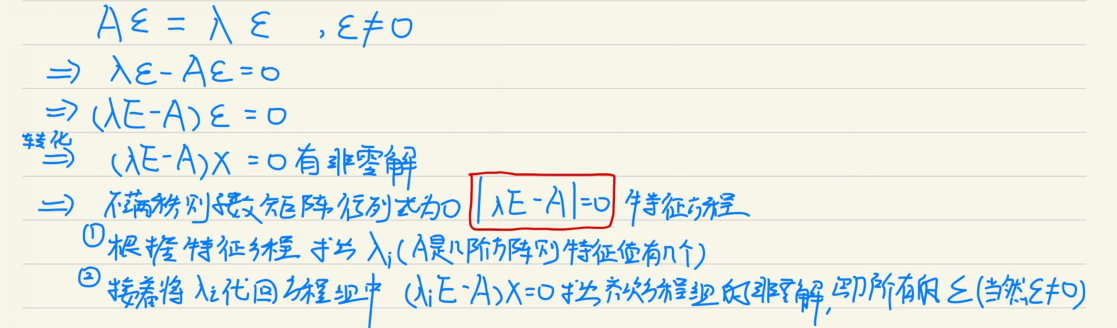 Aε = λε , ε≠0
⇒ λε-Aε=0
⇒ (λE-A)ε=0
转化
⇒ (λE-A)X=0有非零解
⇒ 不满秩则系数矩阵行列式为0 |λE-A|=0 特征方程
①根据特征方程 求出 λi (A是n阶方阵则特征值有n个)
②接着将λi代回方程组中 (λiE-A)X=0求出齐次方程组的非零解,即所有的ε(当然ε≠0)